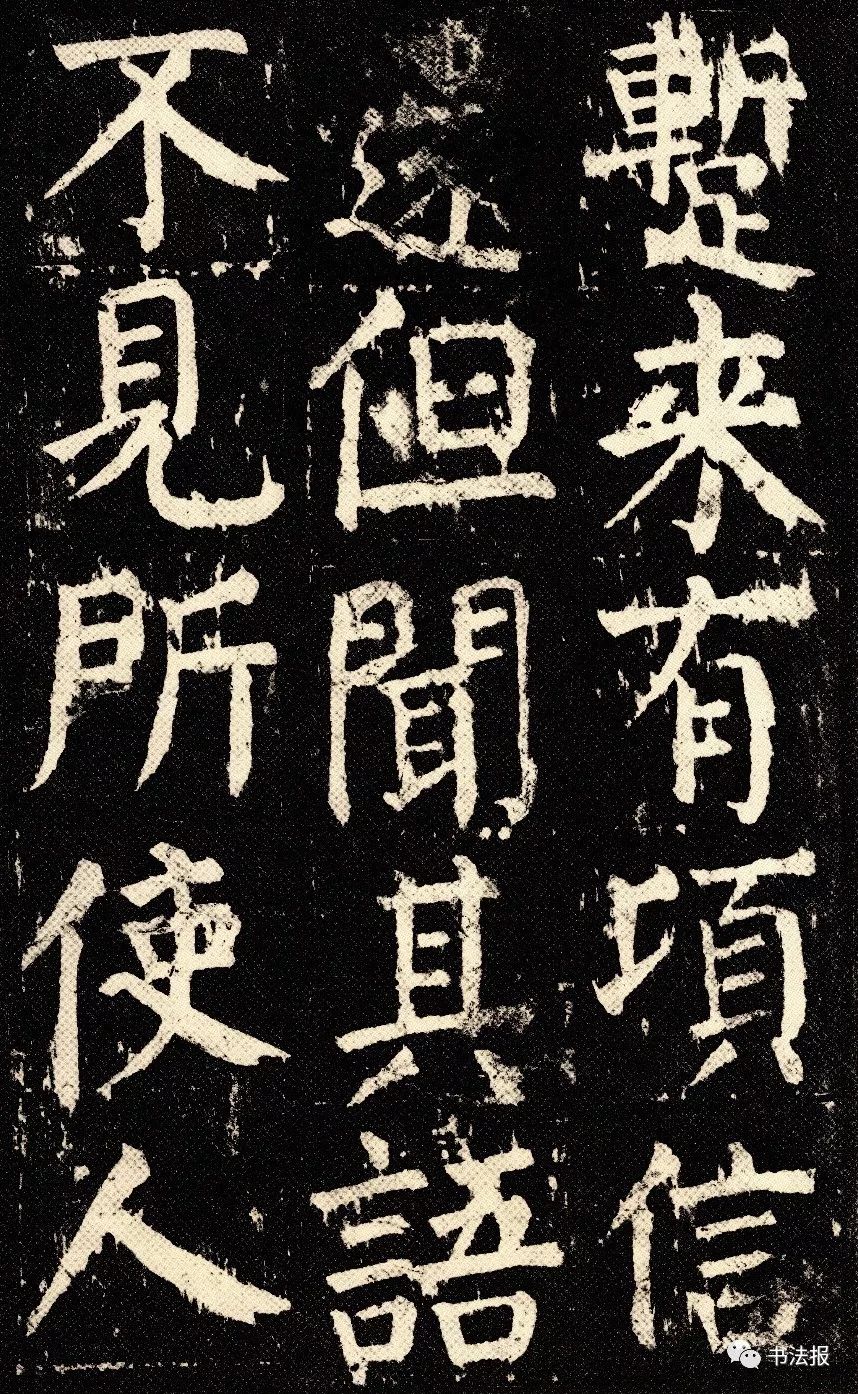 蹔来有頃信
還但聞其語
不見所使人
书法报